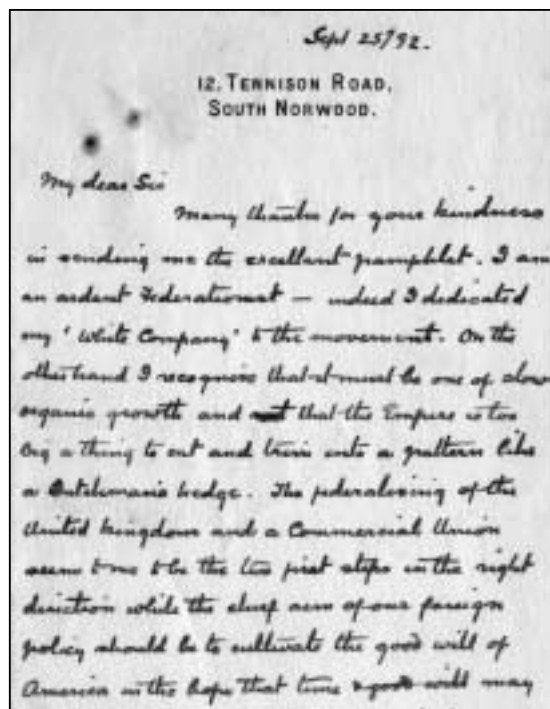 Sept 25/92.
12, TENNISON ROAD,
SOUTH NORWOOD.
My dear Sir
Many thanks for your kindness
in sending me the excellent pamphlet. I am
an ardent Federationist — indeed I dedicated
my 'White Company' to the movement. On the
other hand I recognise that it must be one of slow
organic growth and that the Empire is too
big a thing to cut and trim into a pattern like
a Dutchman's hedge. The federalising of the
United Kingdom and a Commercial Union
seem to me to be the two first steps in the right
direction while the chief aim of our foreign
policy should be to cultivate the good will of
America in the hope that time & good will may